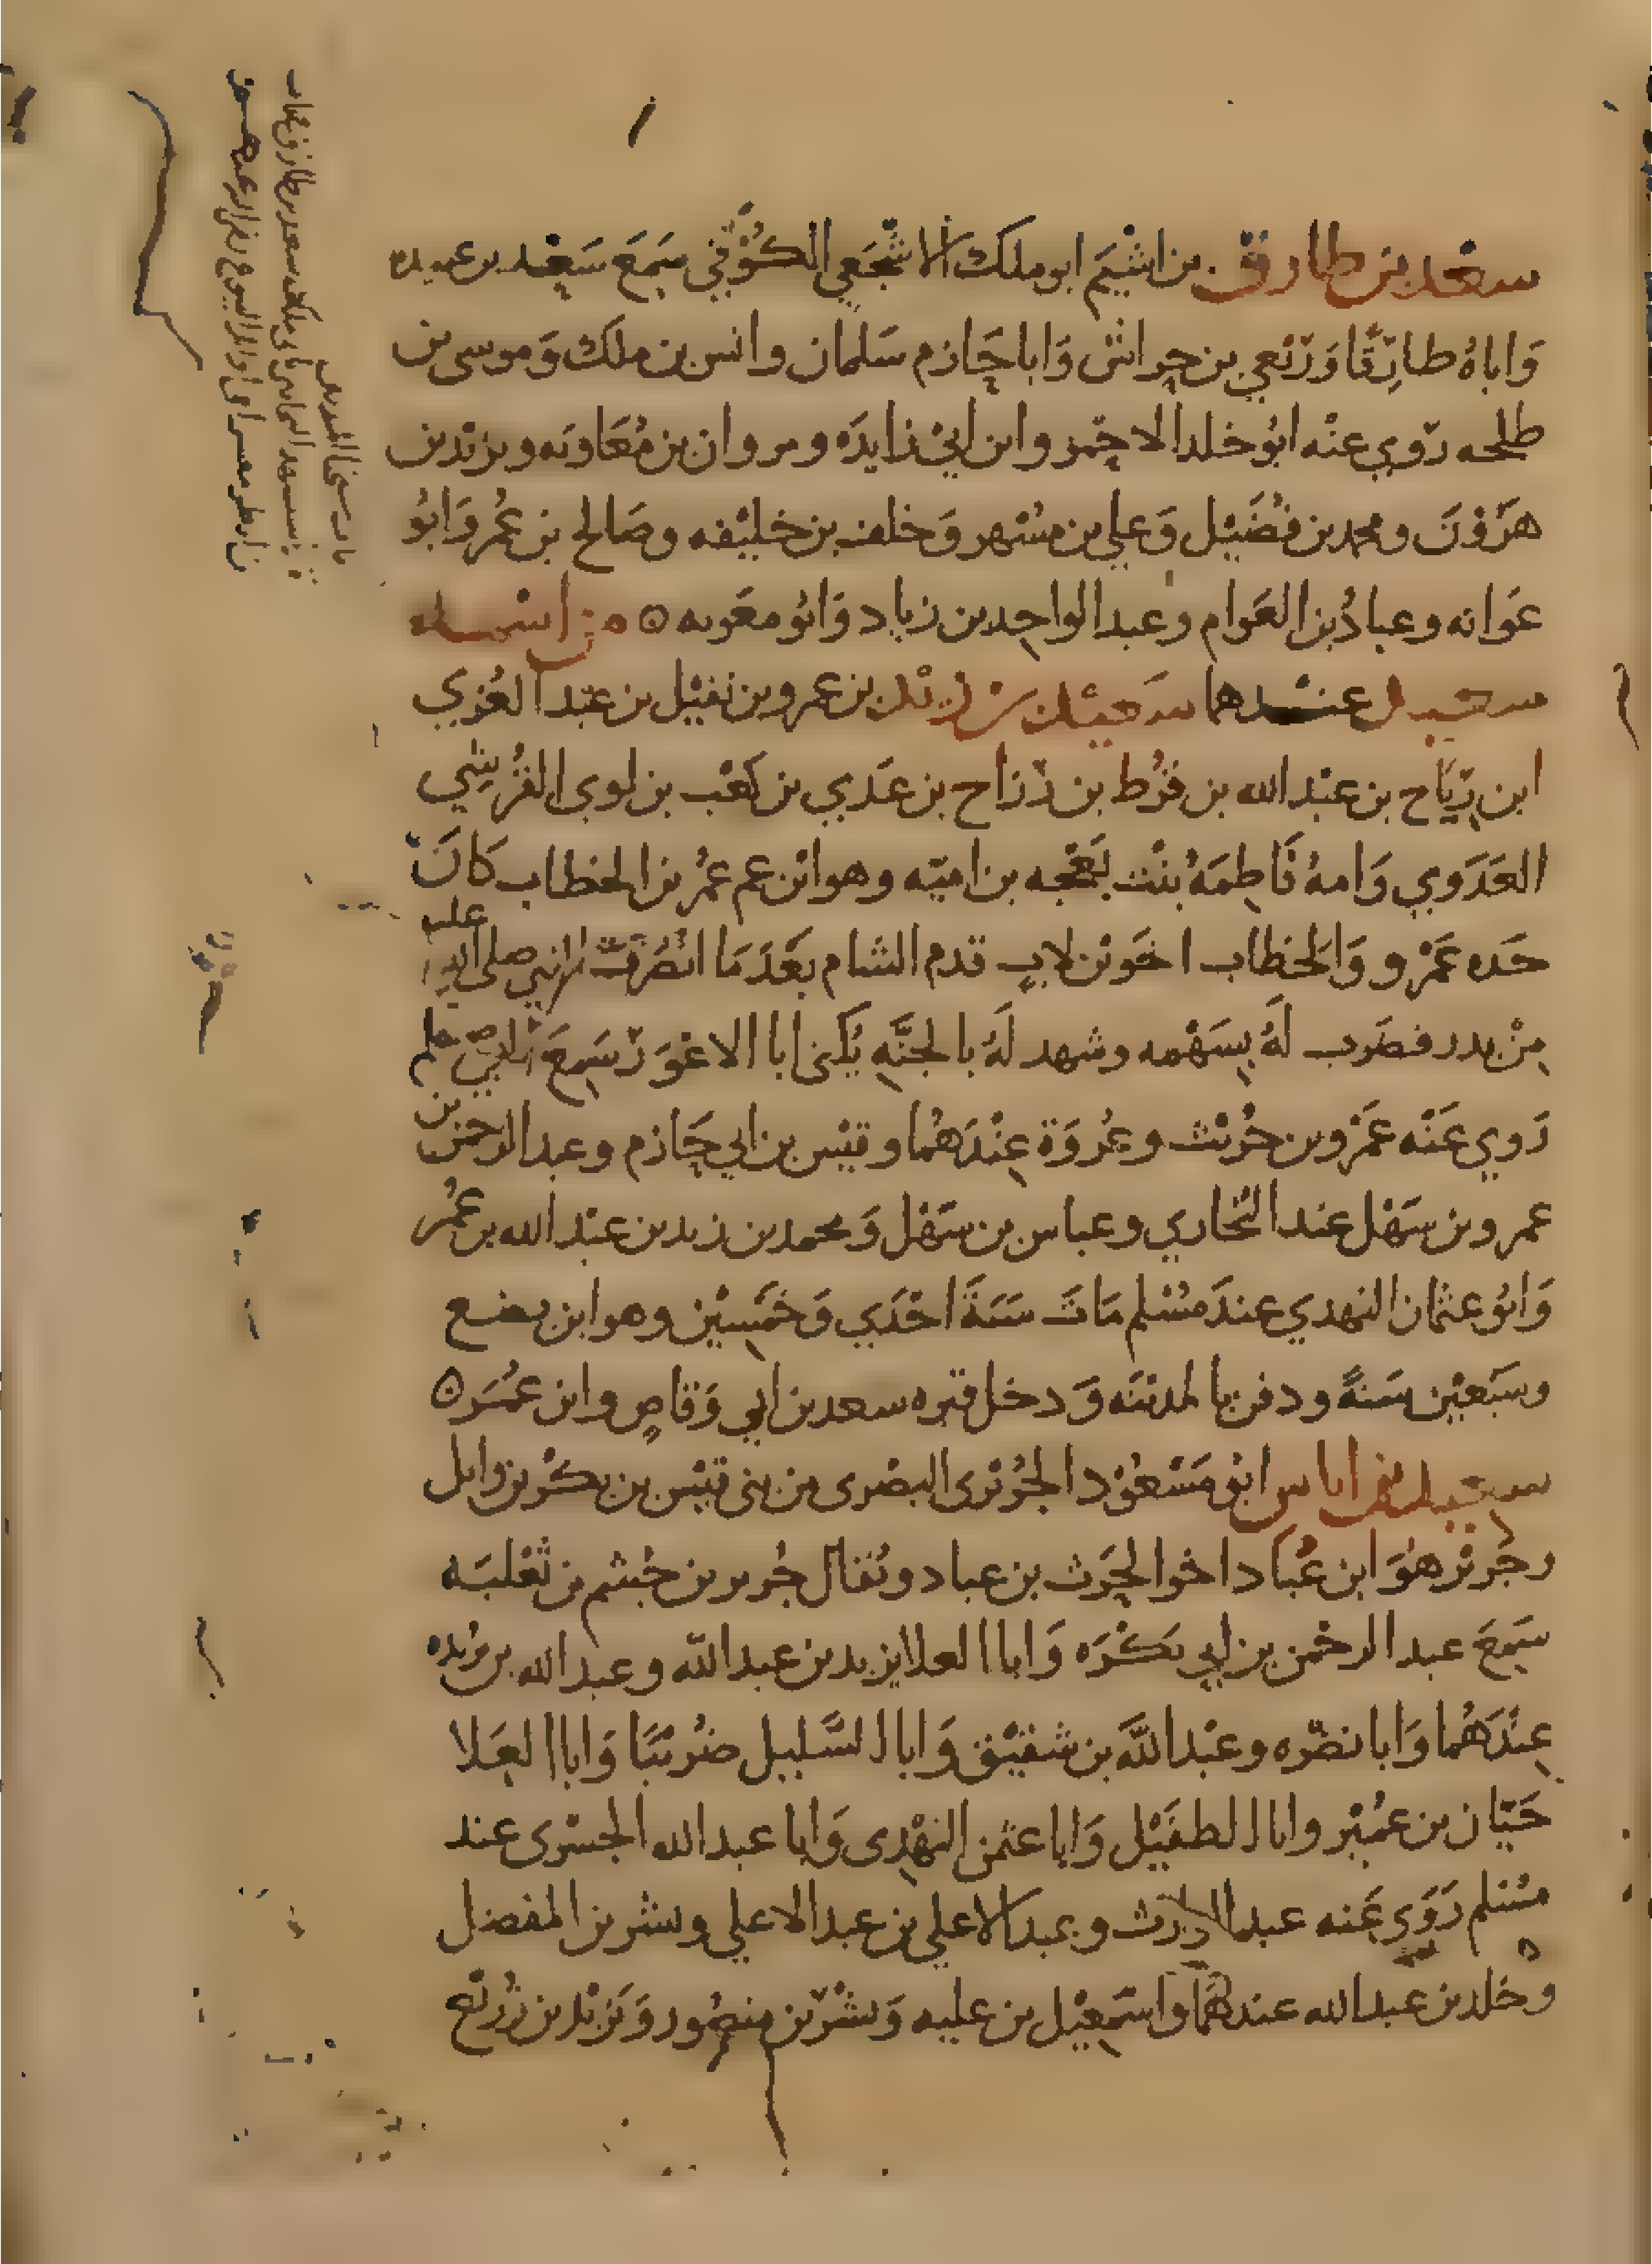 سعد بن طارق بن اشيم ابو ملك الاشجعي الكوفي سمع سعد بن عبيده
واباه طارقا وربعي بن حراش وابا حازم سلمان وانس بن ملك وموسى بن
طلحه روي عنه ابو خلد الاحمر وابن ابي زايده ومروان بن معاويه ويزيد بن
هرون ومحمد بن فضيل وعلي بن مسهر وخلف بن خليفه وصالح بن عمر وابو
عوانه وعباد بن العوام وعبد الواحد بن زياد وابو معويه ٥ من اسمه
سعيد عندهما سعيد بن زيد بن عمرو بن نفيل بن عبد العزي
ابن رياح بن عبد الله بن قرط بن رزاح بن عدي بن كعب بن لوي القرشي
العدوي وامه فاطمه بنت بعجه بن اميه وهو ابن عم عمر بن الخطاب كان
جده عمرو والخطاب اخوين لاب قدم الشام بعد ما انصرف النبي صلى الله عليه
من بدر فضرب له بسهمه وشهد له بالجنه يكنى ابا الاعور سمع النبي صلم
روي عنه عمرو بن حريث وعروة عندهما وقيس بن ابي حازم وعبد الرحمن بن
عمرو بن سهل عند البخاري وعباس بن سهل ومحمد بن زيد بن عبد الله بن عمر
وابو عثمان النهدي عند مسلم مات سنة احدي وخمسين وهو ابن بضع
وسبعين سنة ودفن بالمدينه ودخل قبره سعد بن ابي وقاص وابن عمر ٥
سعيد بن اياس ابو مسعود الجريرى البصرى من بنى قيس بن بكر بن وايل
وجرير هو ابن عباد اخو الحرث بن عباد ويقال جرير بن جشم بن ثعلبه
سمع عبد الرحمن بن ابي بكره وابا العلا يزيد بن عبد الله وعبد الله بن بريده
عندهما وابا نضره وعبد الله بن شقيق وابا السليل ضريبا وابا العلا
حيان بن عمير وابا الطفيل وابا عثمن النهدى وابا عبد الله الجسرى عند
مسلم روى عنه عبد الوارث وعبد الاعلي بن عبد الاعلي وبشر بن المفضل
وخلد بن عبد الله عندهما واسمعيل بن عليه وبشر بن منصور ويزيد بن زريع